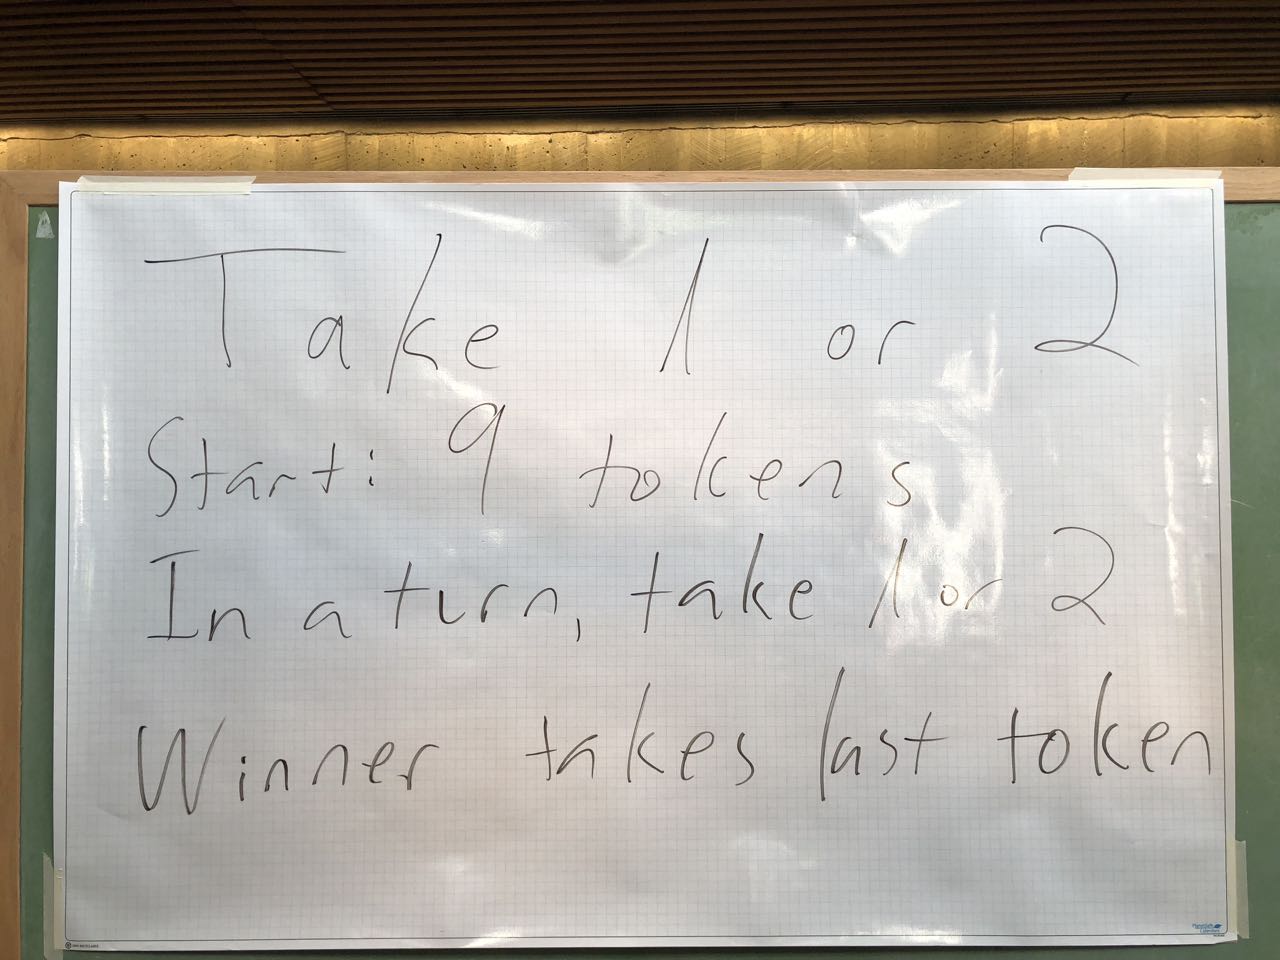 Take 1 or 2
Start: 9 tokens
In a turn, take 1 or 2
Winner takes last token